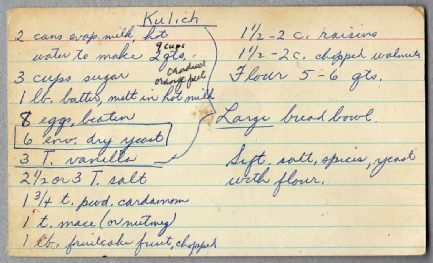 Kulich
2 cans evap. milk hot
9 cups
water to make 2 qts.
candied
orange peel
3 cups sugar
1 lb. butter, melt in hot milk
8 eggs, beaten
6 env. dry yeast
3 T. vanilla
2 1/2 or 3 T. salt
1 3/4 t. pwd. cardamom
1 t. mace (or nutmeg)
1 lb. fruitcake fruit, chopped
1 1/2 - 2 c. raisins
1 1/2 - 2 c. chopped walnuts
Flour 5-6 qts.
Large bread bowl.
Sift salt, spices, yeast
with flour.